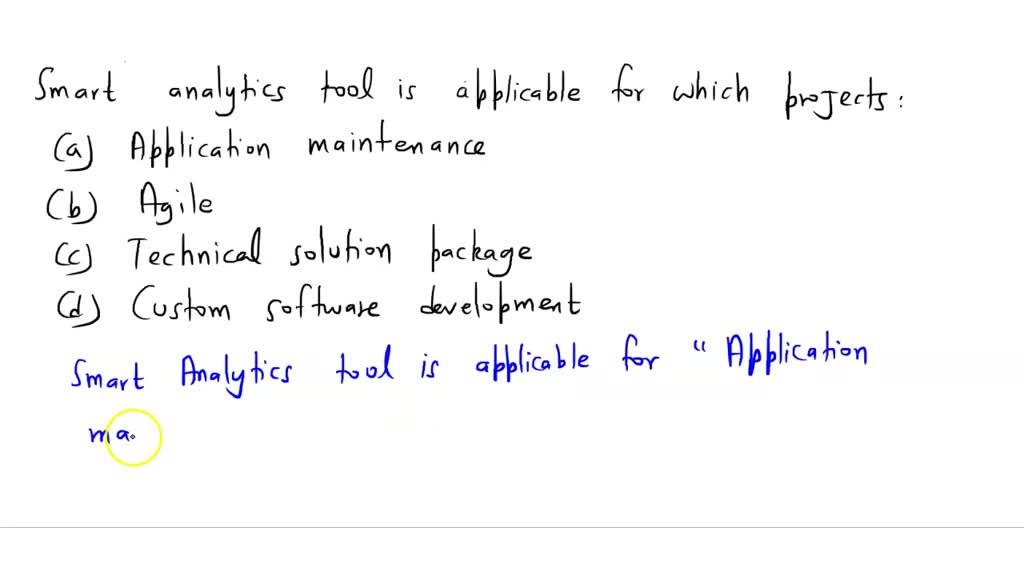 Smart analytics tool is applicable for which projects:
(a) Application maintenance
(b) Agile
(c) Technical solution package
(d) Custom software development
Smart Analytics tool is applicable for "Application
ma